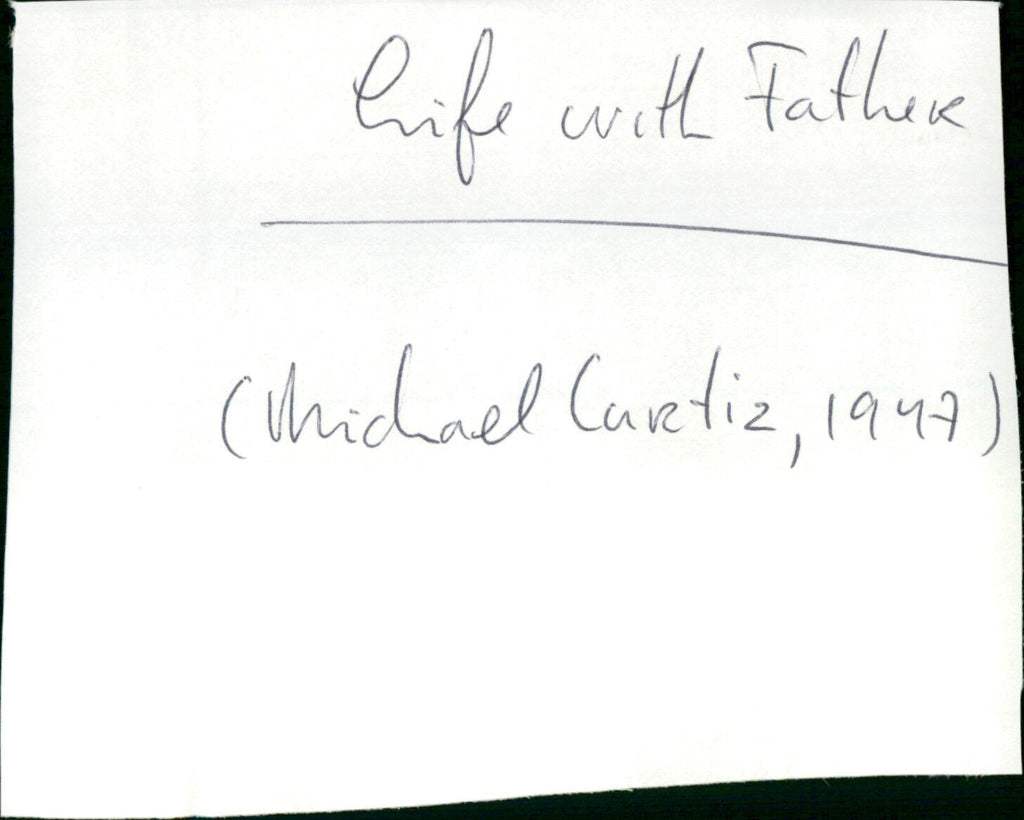 Life with Father
(Michael Curtiz, 1947)